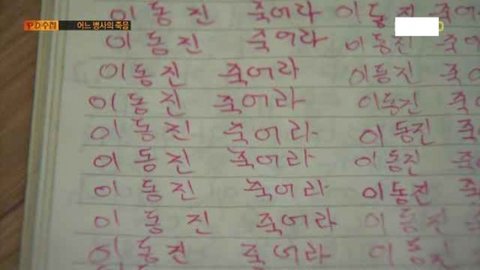 PD수첩 어느 병사의 죽음
이동진 죽어라 이동진 죽
이동진 죽어라 이동진 죽
이동진 죽어라 이동진 죽
이동진 죽어라 이동진 죽
이동진 죽어라 이동진 죽
이동진 죽어라 이동진 죽
이동진 죽어라 이동진 죽
이동진 죽어라 이동진 죽
이동진 죽어라 이동진 죽